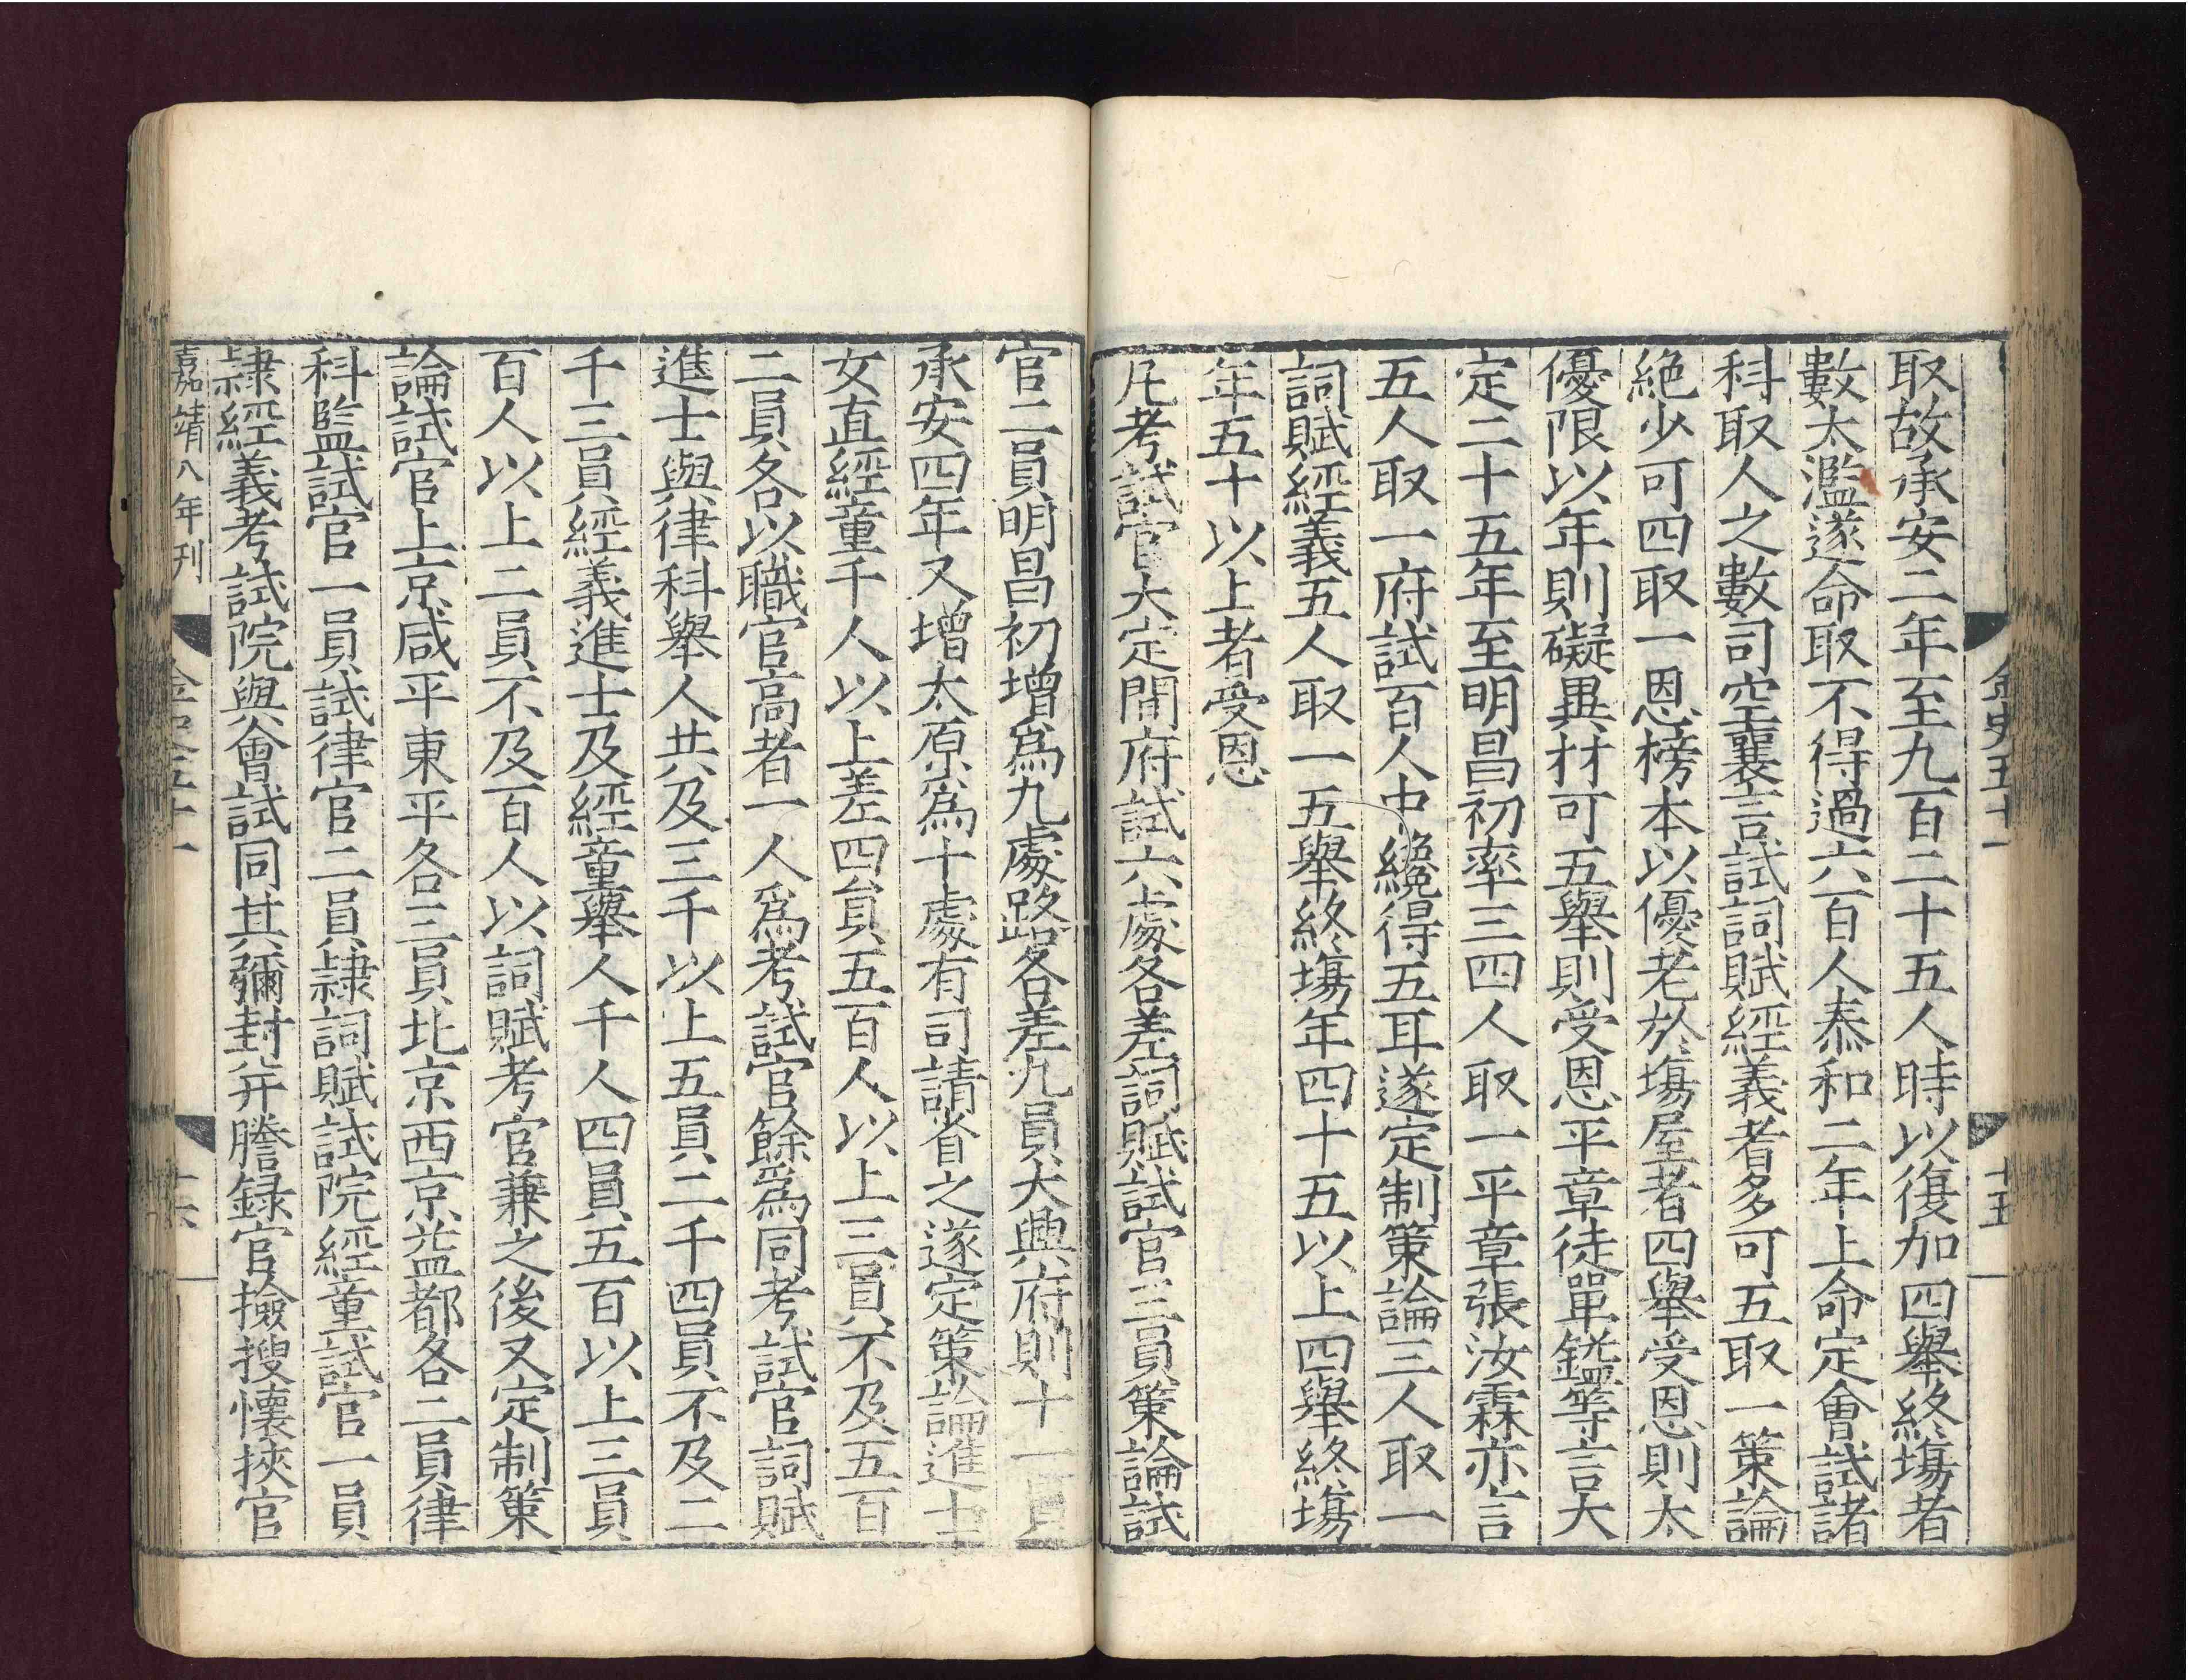 金史五十一
十五
取故承安二年至九百二十五人時以復加四舉終塲者
數太濫遂命取不得過六百人泰和二年上命定會試諸
科取人之數司空襄言試詞賦經義者多可五取一策論
絶少可四取一恩榜本以優老於塲屋者四舉受恩則太
優限以年則礙異材可五舉則受恩平章徒單鎰等言大
定二十五年至明昌初率三四人取一平章張汝霖亦言
五人取一府試百人中纔得五耳遂定制策論三人取一
詞賦經義五人取一五舉終塲年四十五以上四舉終塲
年五十以上者受恩
凡考試官大定間府試六處各差詞賦試官三員策論試
官二員明昌初增爲九處路各差九員大興府則十一員
承安四年又增太原爲十處有司請省之遂定策論進士
女直經童千人以上差四員五百人以上三員不及五百
二員各以職官高者一人爲考試官餘爲同考試官詞賦
進士與律科舉人共及三千以上五員二千四員不及二
千三員經義進士及經童舉人千人四員五百以上三員
百人以上二員不及百人以詞賦考官兼之後又定制策
論試官上京咸平東平各三員北京西京益都各二員律
科監試官一員試律官二員隷詞賦試院經童試官一員
隷經義考試院與會試同其彌封并謄録官撿搜懷挾官
嘉靖八年刊
金史五十一
十六